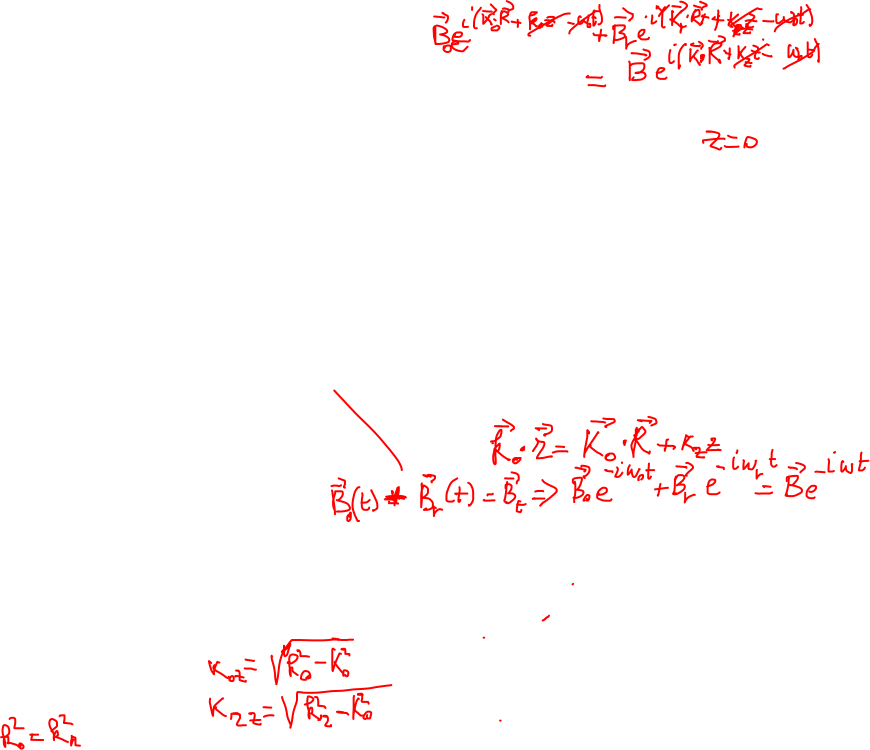 B⃗₀e^{i(K⃗₀·R⃗ + k₀z z − ω₀t)} + B⃗ᵣe^{i(K⃗ᵣ·R⃗ + kᵣz z − ω₀t)}
= B⃗ e^{i(K⃗₀R⃗ + k_z z − ω₀t)}
z=0
k⃗₀·r⃗ = K⃗₀·R⃗ + k_z z
B⃗₀(t) + B⃗ᵣ(t) = B⃗ₜ ⇒ B⃗₀e^{−iω₀t} + B⃗ᵣe^{−iωᵣt} = B⃗e^{−iωt}
k₀z = √(k₀² − K₀²)
kᵣz = √(kᵣ² − K₀²)
k₀² = kᵣ²